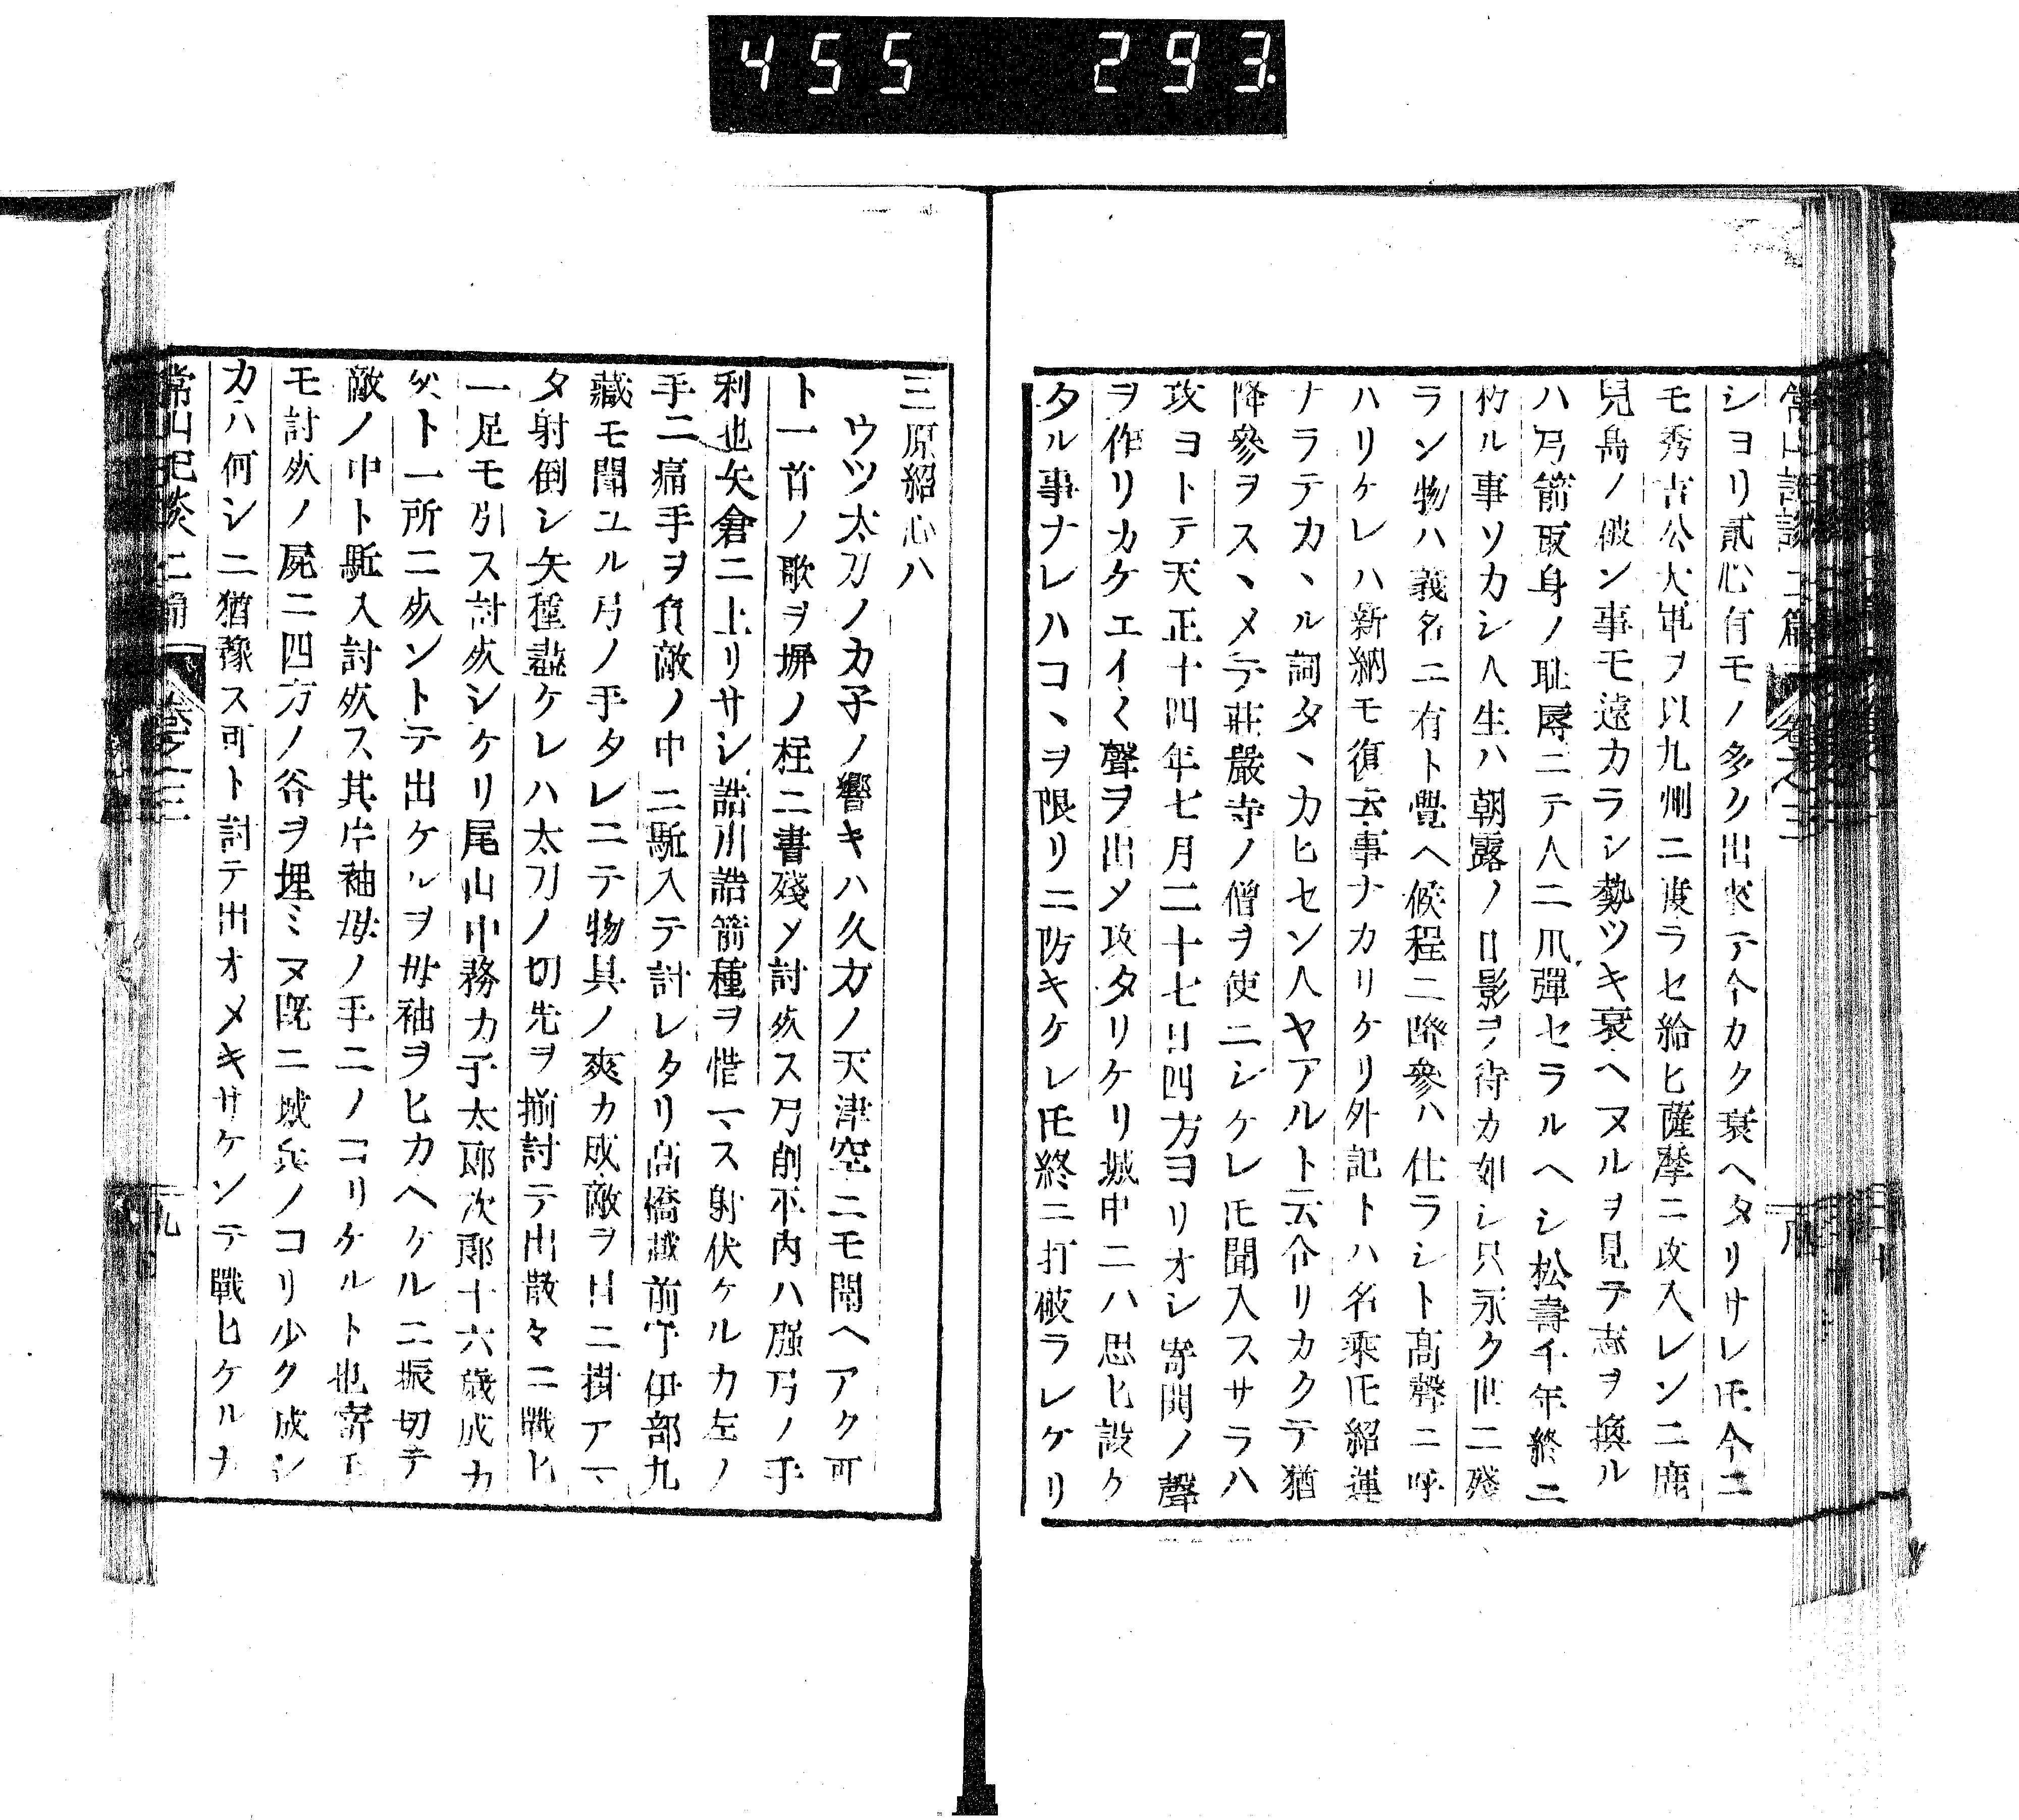 455 293.
常山紀談二篇 卷之三 八
ショリ貳心有モノ多ク出來テ今カク衰ヘタリサレ𪜈今ニ
モ秀吉公大軍ヲ以九州ニ渡ラセ給ヒ薩摩ニ攻入レンニ鹿
兒島ノ破ン事モ遠カラシ勢ツキ衰ヘヌルヲ見テ志ヲ換ル
ハ弓箭取身ノ耻辱ニテ人ニ爪彈セラルヘシ松壽千年終ニ
朽ル事ソカシ人生ハ朝露ノ日影ヲ待カ如シ只永ク世ニ殘
ラン物ハ義名ニ有ト覺ヘ候程ニ降參ハ仕ラシト髙聲ニ呼
ハリケレハ新納モ復云事ナカリケリ外記トハ名乘𪜈紹運
ナラテカヽル詞タヽカヒセン人ヤアルト云合リカクテ猶
降參ヲスヽメテ莊嚴寺ノ僧ヲ使ニシケレ𪜈聞入スサラハ
攻ヨトテ天正十四年七月二十七日四方ヨリオシ寄鬨ノ聲
ヲ作リカケエイ〱聲ヲ出メ攻タリケリ城中ニハ思ヒ設ケ
タル事ナレハコヽヲ限リニ防キケレ𪜈終ニ打破ラレケリ
三原紹心ハ
ウツ太刀ノカ子ノ響キハ久カノ天津空ニモ聞ヘアク可
ト一首ノ歌ヲ塀ノ柱ニ書殘メ討死ス弓削平内ハ强弓ノ手
利也矢倉ニ上リサシ詰引詰箭種ヲ惜マス射伏ケルカ左ノ
手ニ痛手ヲ負敵ノ中ニ駈入テ討レタリ髙橋越前守伊部九
藏モ聞ユル弓ノ手タレニテ物具ノ爽カ成敵ヲ目ニ掛アマ
タ射倒レ矢種盡ケレハ太刀ノ切先ヲ揃討テ出散々ニ戰ヒ
一足モ引ス討死シケリ尾山中務カ子太郎次郎十六歲成カ
父ト一所ニ死ントテ出ケルヲ母袖ヲヒカヘケルニ振切テ
敵ノ中ト駈入討死ス其片袖母ノ手ニノコリケルト也寄手
モ討死ノ屍ニ四方ノ谷ヲ埋ミヌ既ニ城兵ノコリ少ク成シ
カハ何シニ猶豫ス可ト討テ出オメキサケンテ戰ヒケルナ
常山紀談二篇 卷之三 九